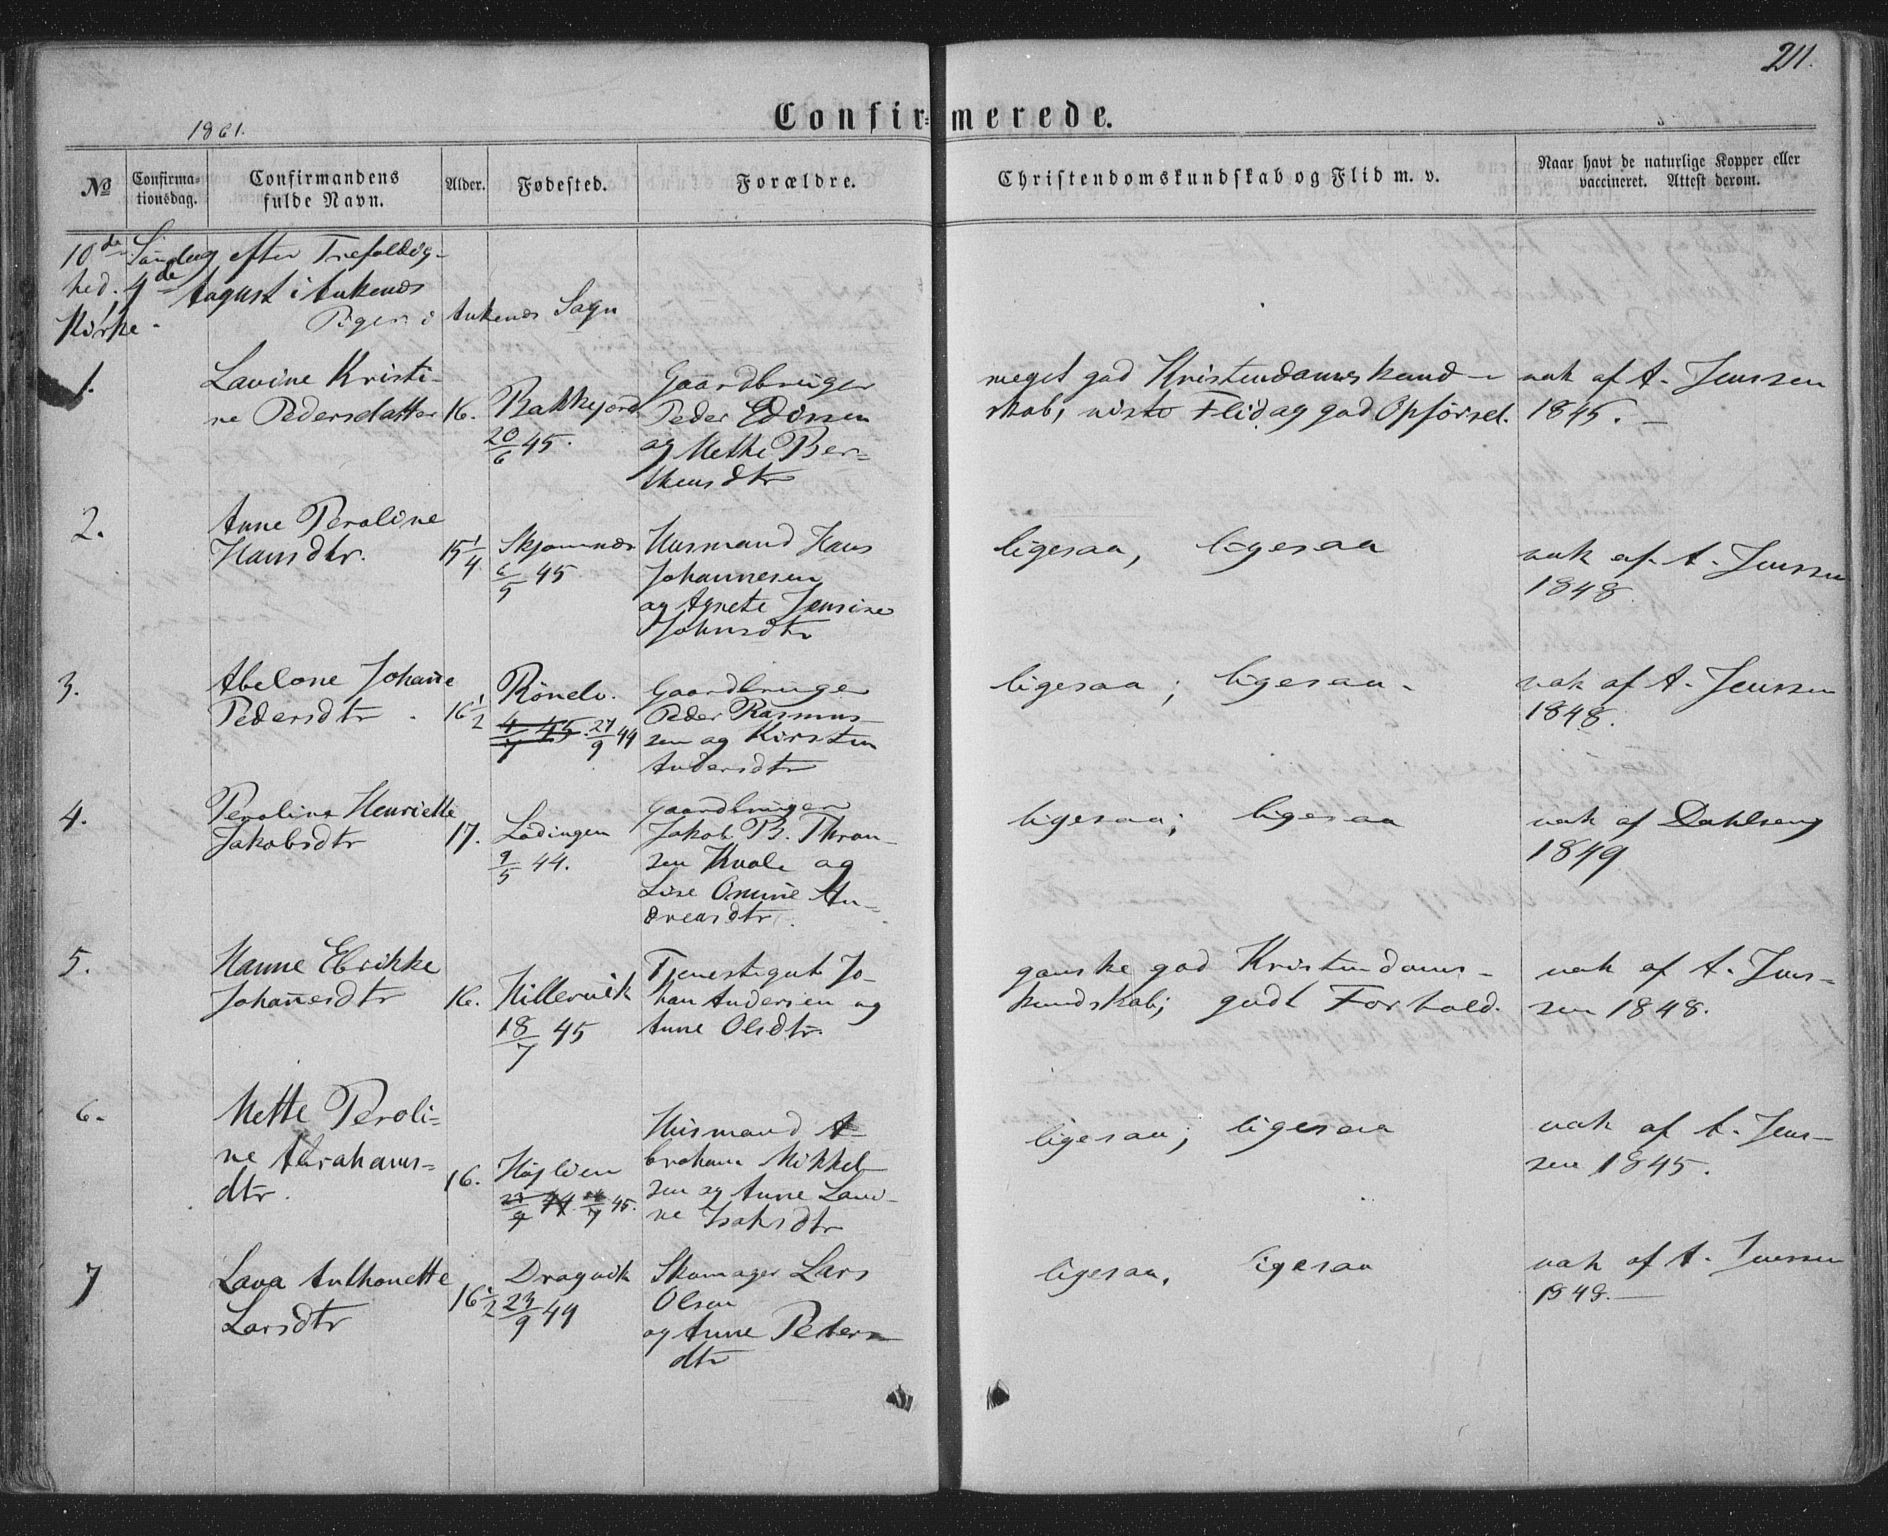 211.
Confirmerede.
1861.
No
Confirmationsdag.
Confirmandens fulde Navn.
Alder.
Fødested.
Forældre.
Christendomskundskab og Flid m. v.
Naar havt de naturlige Kopper eller vaccineret. Attest derom.
10de Søndag efter Trefoldig-
hed. 4de August i Ankenes
Kirke.
Piger i Ankenes Sogn
1.
Lavine Kristi-
ne Pedersdatter
16.
Bakkejord
20/6 45.
Gaardbruger
Peder Edissen
og Methe Ber-
thensdtr
meget god Kristendomskund-
skab, vist Flid og god Opførsel.
vak af A. Jenssen
1845.
2.
Anne Peroline
Hansdtr.
15 1/4
Skjomnæs
6/5 45
Husmand Hans
Johannesen
og Agnete Jensine
Johnsdtr
ligesaa, ligesaa
vak af A. Jenssen
1848.
3.
Abelone Johanne
Pedersdtr
16 1/2
Rönelv.
4/7 45. 27/9 44
Gaardbruger
Peder Rasmus-
sen og Kirsten
Andersdtr
ligesaa; ligesaa.
vak af A. Jenssen
1848.
4.
Perolina Henriette
Jakobsdtr
17.
Lødingen
9/5 44.
Gaardbruger
Jakob B. Thran-
sen Kvale og
Lise Amine An-
dreasdtr.
ligesaa; ligesaa
vak af Dahlseng
1849
5.
Hanne Erikke
Johannesdtr
16.
Hillervik
18/7 45
Tjenestegut Jo-
han Andersen og
Anne Olsdtr.
ganske god Kristendoms-
kundskab; godt Forhold.
vak af A. Jens-
sen 1848.
6.
Mette Peroli-
ne Abrahams-
dtr.
16.
Højlien
23/9 44. 16/7 45.
Husmand A-
braham Mikkel-
sen og Anne Lavi-
ne Isaksdtr
ligesaa; ligesaa
vak af A. Jens-
sen 1845.
7
Lava Anthonette
Larsdtr
16 1/2
Dragvik
23/9 44
Skomager Lars
Olsen
og Anne Peders
dtr
ligesaa, ligesaa
vak af A. Jenssen
1848.